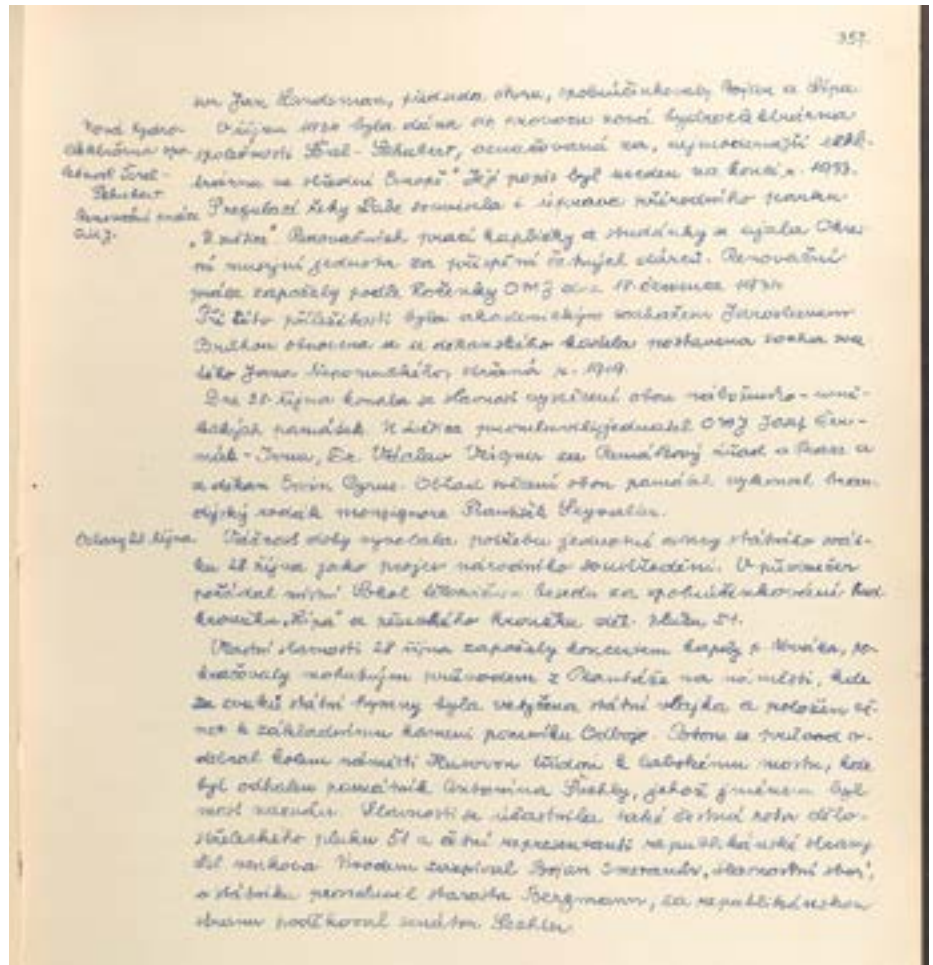 357.
Jan Handsman, předseda sboru, spoluúčinkovaly Bojan a Řípa
Nová hydro-
elektrárna spo-
lečnosti
Schubert
Renovační práce
OMJ.
V říjnu 1934 byla dána do provozu nová hydroelektrárna
společnosti Schubert, označovaná za „nejmodernější elek-
trárnu ve střední Evropě“. Její popis byl uveden na konci r. 1933.
S regulací řeky Labe souvisela i úprava přírodního parku
Renovačních prací kapličky a studánky se ujala Okres-
ní musejní jednota za přispění četných dárců. Renovační
práce započaly podle Ročenky OMJ dne 18. července 1934.
Při této příležitosti byla akademickým sochařem Jaroslavem
Brůhou obnovena a u děkanského kostela postavena socha sva-
tého Jana Nepomuckého, zbořená r. 1919.
Dne 28. října konala se slavnost vysvěcení obou nábožensko-umě-
leckých památek. promluvili jednatel OMJ Josef
Dr. Václav Wagner za Památkový úřad v Praze a
děkan Ervín Cyrus. Obřad svěcení obou památek vykonal bran-
dýský rodák monsignore František
Oslavy 28. října
Vážnost doby vyvolala potřebu jednotné oslavy státního svát-
ku 28. října jako projev národního soustředění. V předvečer
pořádal místní Sokol besedu za spoluúčinkování
kroužku „Řípa“ a pěveckého kroužku děl. pluku 51.
Vlastní slavnosti 28. října započaly koncertem kapely p. Nováka, po-
kračovaly mohutným průvodem z Plantáže na náměstí, kde
za zvuků státní hymny byla vztyčena státní vlajka a položen vě-
nec k základnímu kameni pomníku Odboje. Potom se průvod o-
debral kolem náměstí Husovou třídou k labskému mostu, kde
byl odhalen památník Antonína Švehly, jehož jménem byl
most nazván. Slavnosti se účastnila také čestná rota dělo-
střeleckého pluku 51 a četní representanti republikánské strany
lid venkova. Úvodem zazpíval Bojan
o státníku promluvil starosta Bergmann, za republikánskou
stranu poděkoval senátor